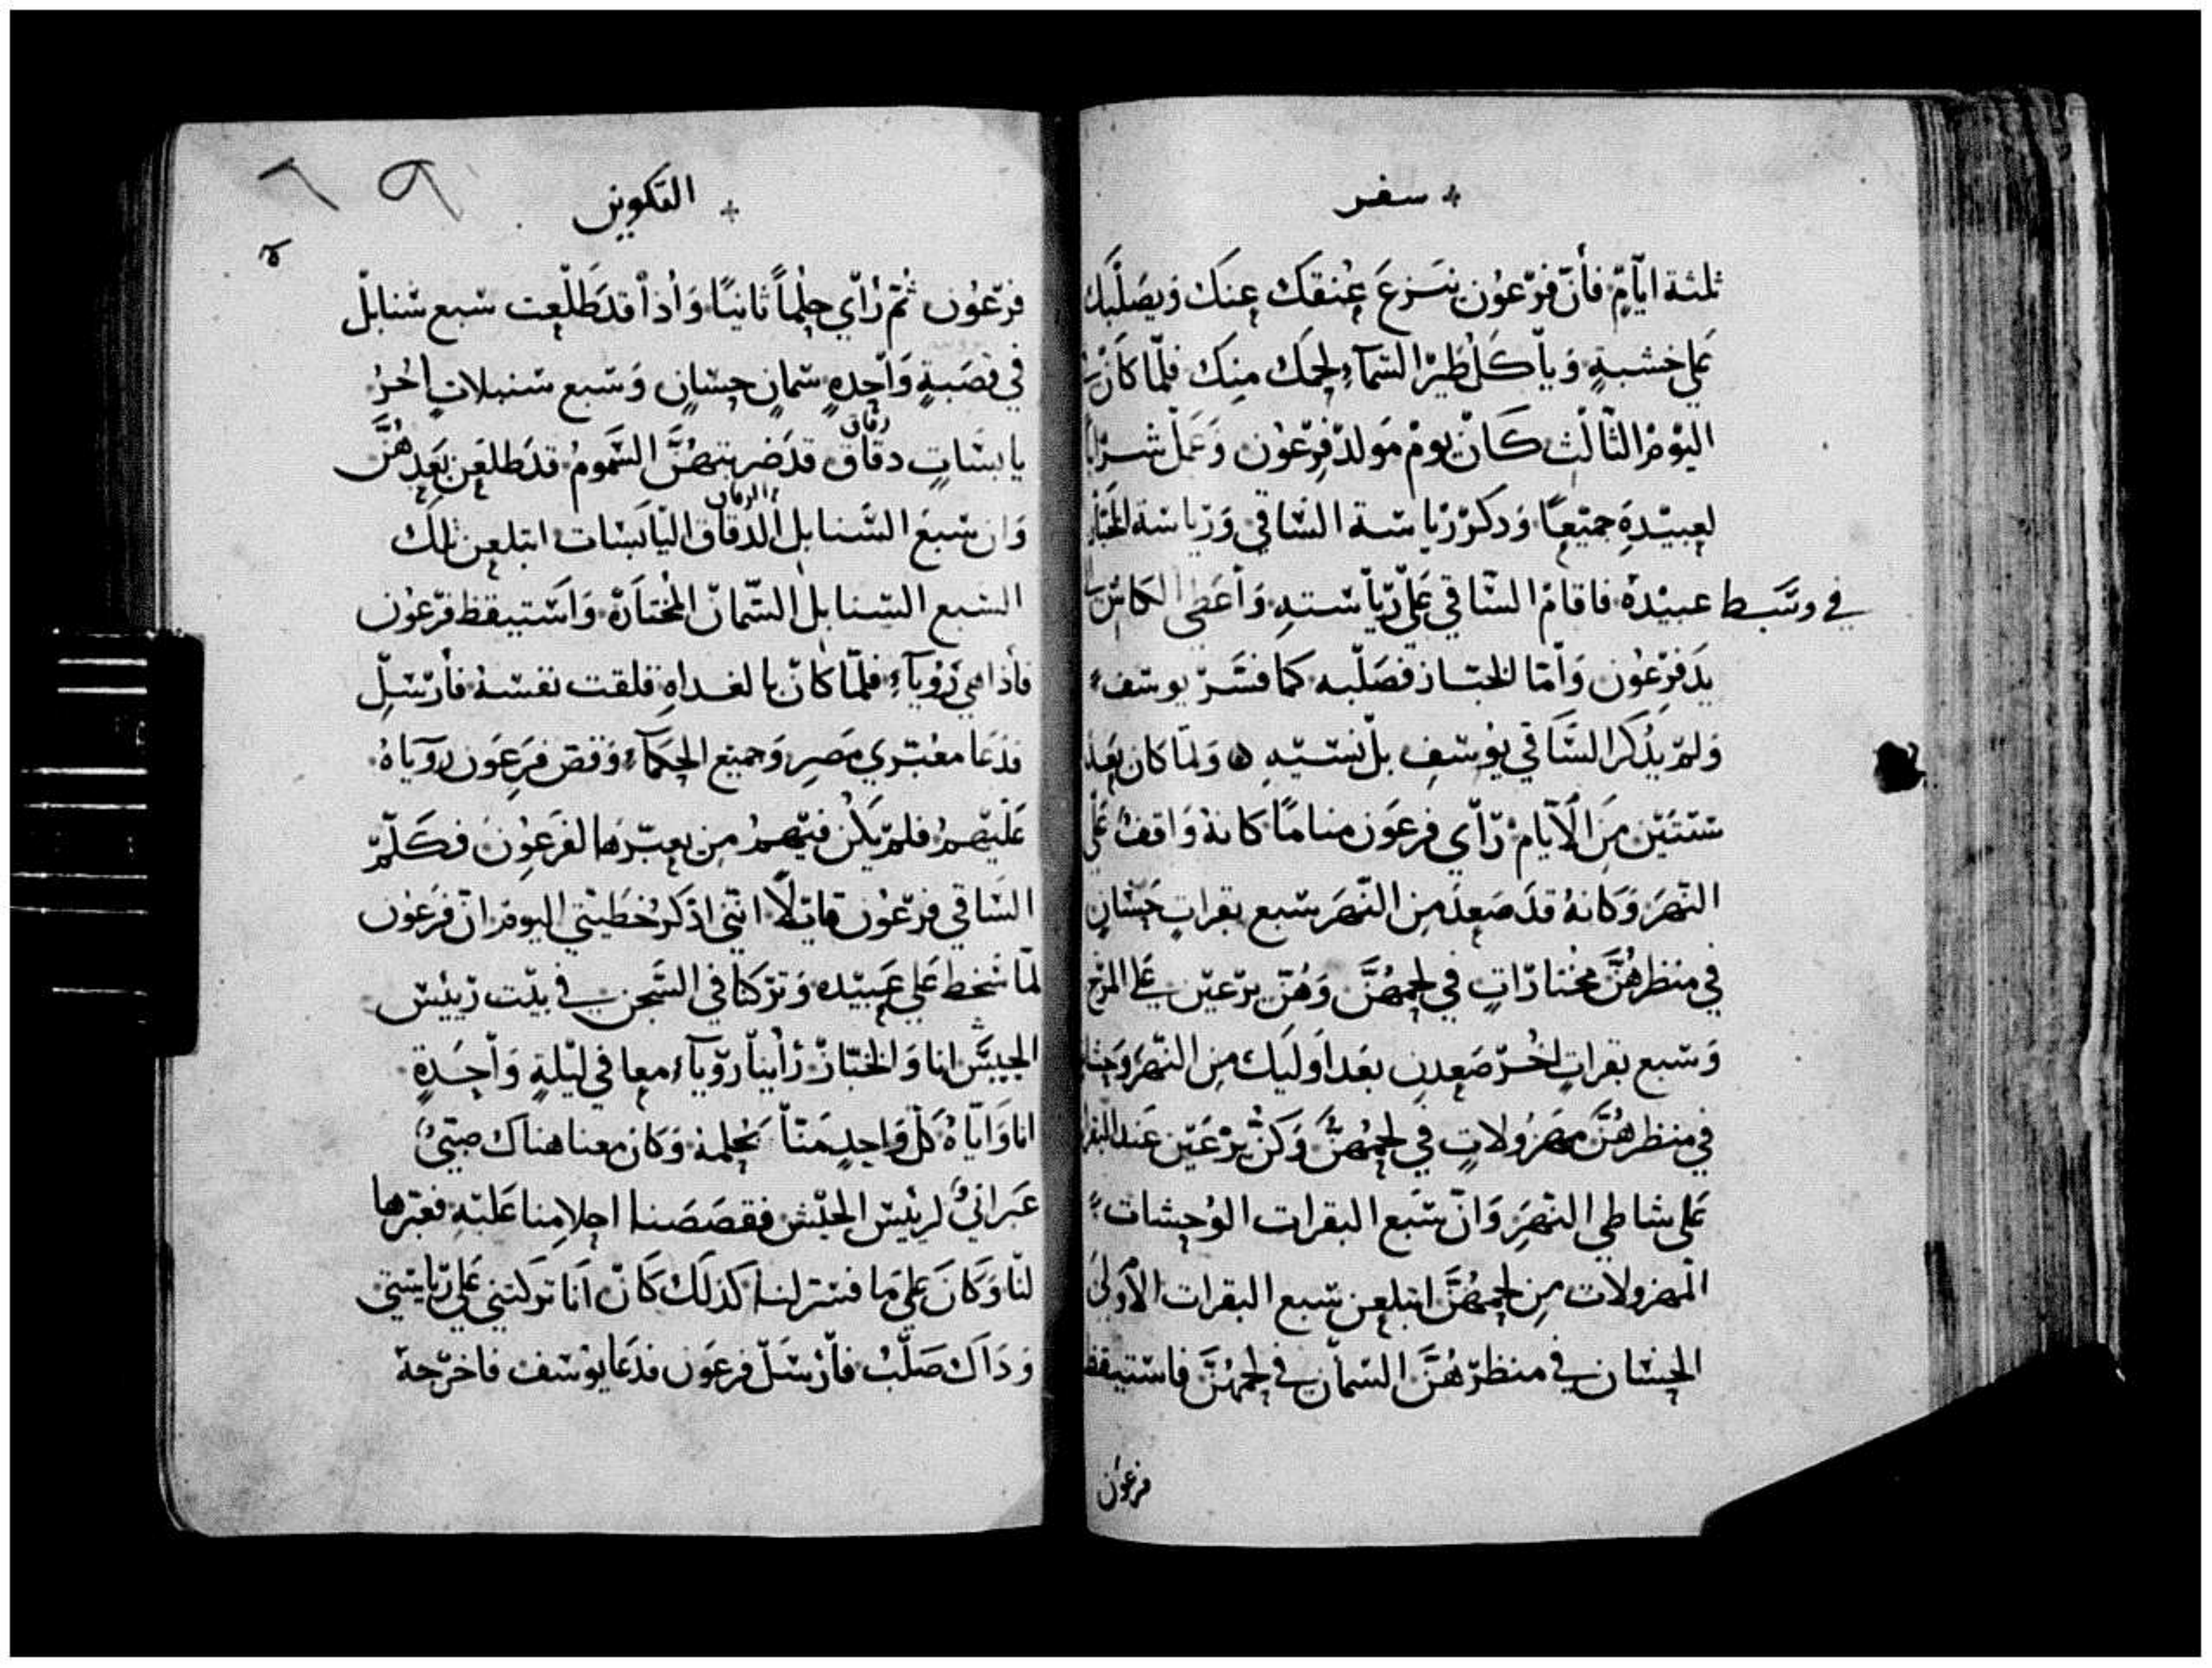 سفر
ثلثة ايّامٍ فأنّ فرّعوُن ينتزعَ عنقكَ عنكَ وَيصَلّبَك
عَلي خشبةٍ وَياكلَ طيرّ السّمآء لحمكَ منِكَ فلمّا كانَ
اليَومَ الثّالثِ كانّ يومّ مَولدّ فرّعوُن وَعَملّ شرَابًا
لعبيّدهِ جميّعًا وَدكرّ رّياسَة السّاقي وَرَياسَة الخبّاز
في وسَّط عبيّدهّ فاقامّ السّاقي عَليّ رّياسَتهِ وَأعَطي الكاسّ
يَد فرّعوُن وَأمّا الخبّاز فصَلّبه كما فسَّرّ يوسَف
وَلمّ يُذكر السَّاقي يوُسَفِ بلّ نسَيّهِ وَلمّا كان بعَد
سَنتيَنّ مِنَ الآيّامّ رّأي فرعَون منامًا كانهُ وَاقف عَلي
النّهرَ وَكانهُ قدَ صَعدَ مِن النّهَر سَبع بقراتٍ حِسَانٍ
في منظرهُنَّ مخُتارّاتٍ في لحمهُنَّ وَهُنّ يرّعيّن في عَلي المرّج
وَسَبع بقراتٍ اخُرّ صَعدنِ بعَد اوَليَك منِ النّهرَ وَحشات
في منظرهُنَّ مهزوُلاتٍ في لحمهُنَّ وَكنّ يرّعَيّن عَند البقرات
عَلي شاطي النّهرَ وَانّ سَبع البقرات الوُحشات
المهزولات منِ لحمهُنَّ ابتلعن سَبع البقرات الأولي
الحسَان في منظرّهُنَّ السّمان في لحمهُنَّ فاسَتيقظ
فرعوَن
التكوين
٦٩
فرّعوُن ثمّ رّأي حلمُاً ثانيًا وَأذاّ قد طلّعت سَبع سَنابلّ
في قصَبةٍ وَاحدهٍ سَمانٍ حسَانٍ وَسَبع سَنبلاتٍ اخُرُ
رقاق
يابسَاتٍ دقاق قدَ ضربتهُنَّ السَّمومُ قدَ طلعَن بعَدهُنَّ
الرقاق
وَان سَبعَ السَّنابل الدّقاق اليّابسَات ابتلعن تلك
السَبع السَنابل السّمانّ المخُتارَةّ وَاسَتيقظ فرّعوُن
فأذا هي رَوُيآء فلمّا كانّ بالغداهِ قلقت نفسَهُ فأرّسَلّ
فدَعَا معُبّري مصَرِ وَجميَع الحكمآء وَقصّ فرَعوَن رّويَاهُ
عَليّهمُ فلمّ يكُن فيّهمُ منِ يعبّرها لفرَعوُن فكلّمّ
السَاقي فرّعوُن قايّلاً انّني اذكر خُطَيتي اليومّ انّ فرَعوُن
لمّا سَخط عَلي عَبيّده وَترّكنا في السَّجن في بيّت رّييَس
الجيَش انا وَالخبّازّ رّأينا رّويّآء معا في ليّلةٍ وَأحَدةٍ
انا وَأيّاهُ كلّ وَاحدٍ منّاَ بحُلمهُ وَكان معنا هناك صَبيُّ
عَبرانيُّ لرئيسَ الجيّش فقصَصَنا احلامِنا عَليّهِ فعَبّرها
لنّا وَكانَ عَلي مَا فسّرَ لنا كذلَك كانّ أنا توكلتني عَلي رّيَاسَتي
وَدَاكَ صَلّبُ فأرّسَلّ فرعوَن فدَعَا يوُسَفّ فاخرّجهّ